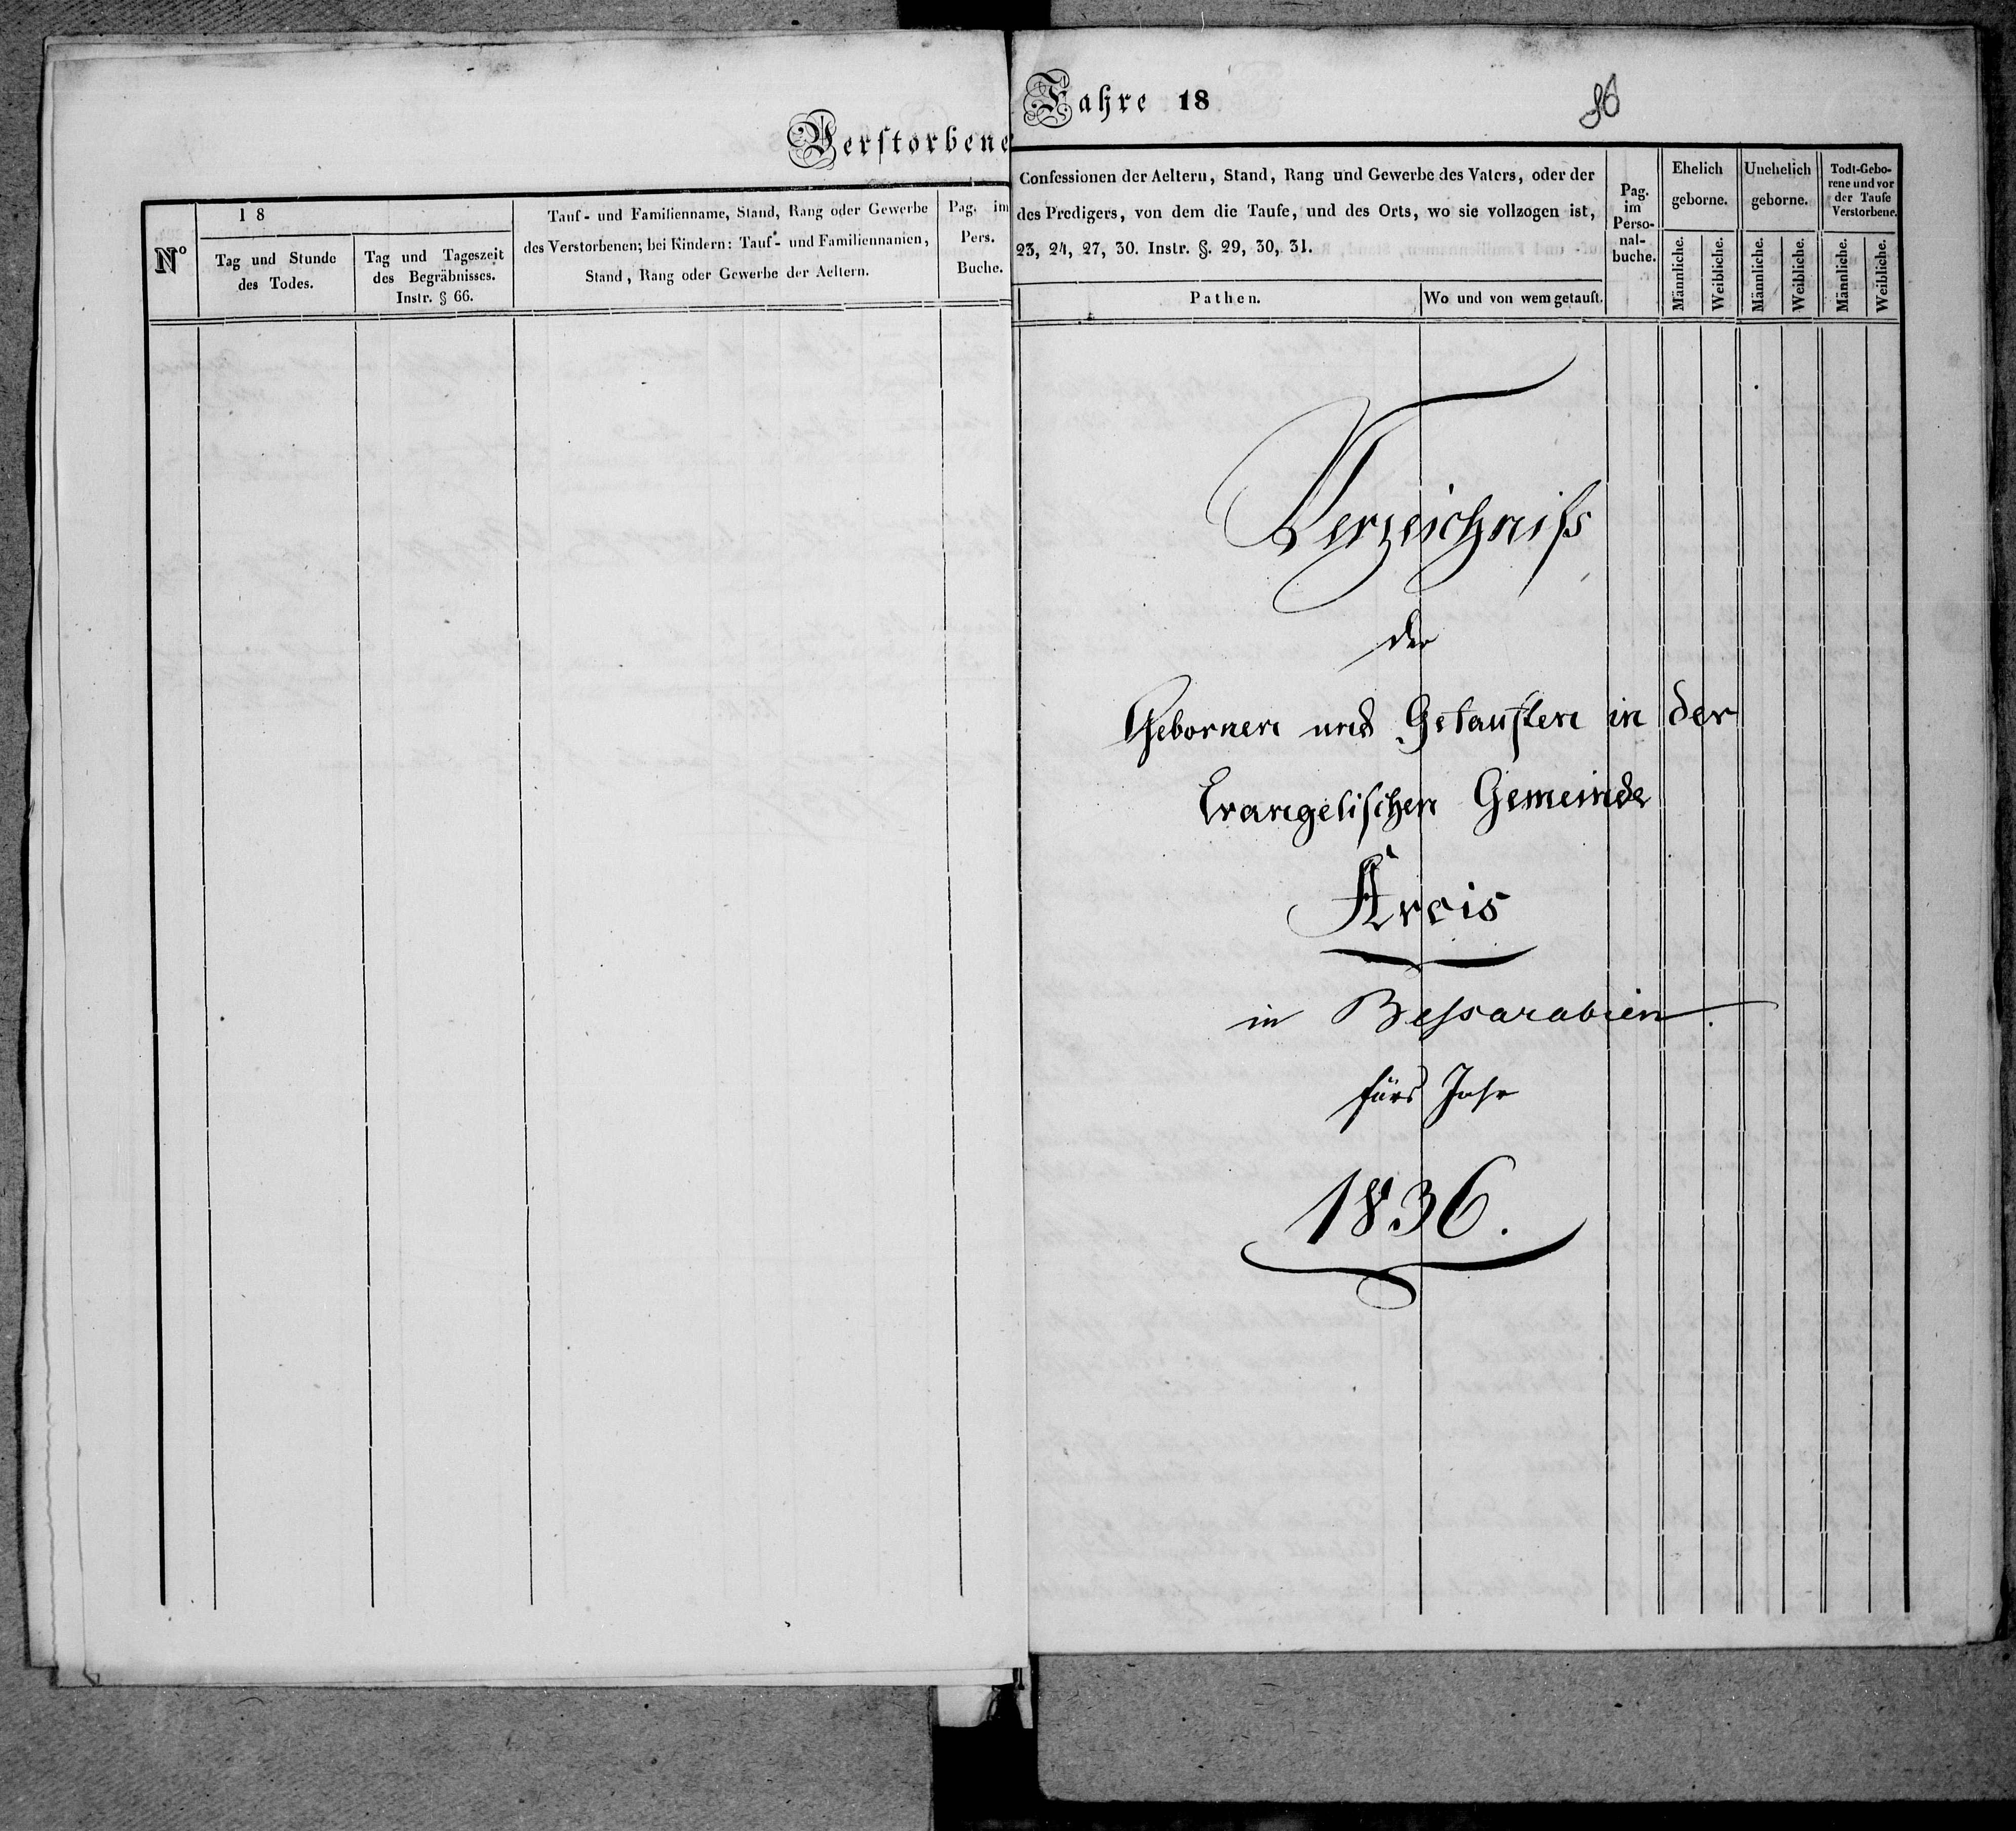 Verstorbene
N°
18
Tag und Stunde
des Todes.
Tag und Tageszeit
des Begräbnisses.
Instr. § 66.
Tauf- und Familienname, Stand, Rang oder Gewerbe
des Verstorbenen; bei Kindern: Tauf- und Familiennamen,
Stand, Rang oder Gewerbe der Aeltern.
Pag. im
Pers.
Buche.
Jahre 18
86
Confessionen der Aeltern, Stand, Rang und Gewerbe des Vaters, oder der
des Predigers, von dem die Taufe, und des Orts, wo sie vollzogen ist,
23, 24, 27, 30. Instr. §. 29, 30, 31.
Pathen.
Wo und von wem getauft.
Pag.
im
Perso-
nal-
buche.
Ehelich
geborne.
Männliche.
Weibliche.
Unehelich
geborne.
Männliche.
Weibliche.
Todt-Gebo-
rene und vor
der Taufe
Verstorbene.
Männliche.
Weibliche.
Verzeichniß
der
Gebornen und Getauften in der
Evangelischen Gemeinde
Arcis
in Bessarabien
fürs Jahr
1836.